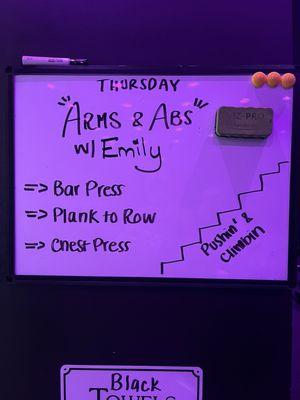 THURSDAY
"ARMS & ABS"
w/ Emily
=> Bar Press
=> Plank to Row
=> Chest Press
Pushin' &
Climbin
Black
TOWELS